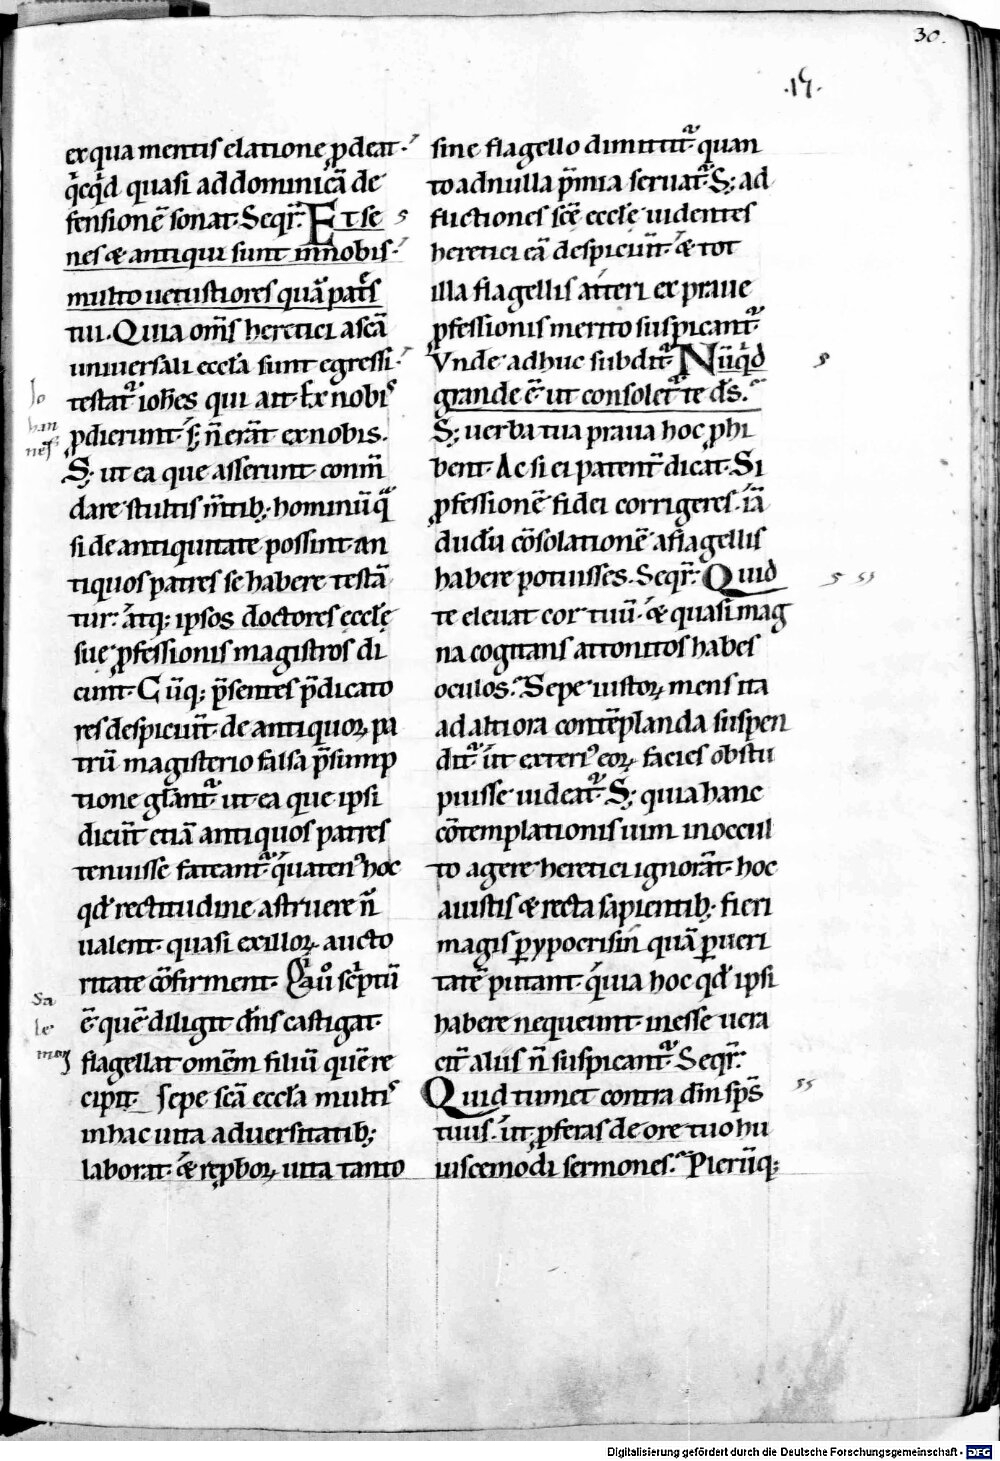 30.
.15.
ex qua mentis elatione ꝓdeat·
q̇cq̇d quasi ad dominicā de
fensionē sonat· Seqr̄· Et se
nes & antiqui sunt in nobis·
multo uetustiores quā patr̄s
tui· Quia om̄s heretici a scā
uniuersali eccła sunt egressi·
Jo
han
nes
testat᷑ ioh̄es qui ait· Ex nobis
ꝓdierunt· s; n̄ erāt ex nobis·
S; ut ea que asserunt· com̄n
dare stultis m̄tib; hominū q̄
si de antiquitate possint· an
tiquos patres se habere testā
tur· atq; ipsos doctores eccłę
suę ꝓfessionis magistros di
cunt· Cūq; p̄sentes p̄dicato
res despiciūt· de antiquoꝝ pa
trū magisterio falsa p̄sump
tione gl̄ant᷑ ut ea que ipsi
dicūt etiā antiquos patres
tenuisse fateant᷑· q̇aten᷒ hoc
qd̄ rectitudine astruere n̄
ualent· quasi ex illoꝝ aucto
ritate cōfirment· Quō sc̄ptū
Sa
le
mon
ē· quē diligit dn̄s castigat·
flagellat om̄em filiū quē re
cipit· sepe scā eccła multis
in hac uita aduersitatib;
laborat· & rep̄boꝝ uita tanto
sine flagello dimittit᷑ quan
to ad nulla p̄mia seruat᷑· S; ad
flictiones scē eccłę uidentes
heretici eā despiciūt· & tot
illa flagellis atteri ex praue
ꝓfessionis merito suspicant᷑·
Vnde adhuc subdit᷑· Nūq̇d
grande ē· ut consolet᷑ te ds̄·
S; uerba tua praua hoc ꝓhi
bent· Ac si ei patent̄ dicat· Si
ꝓfessionē fidei corrigeres· iā
dudū cōsolationē a flagellis
habere potuisses· Seqr̄· Quid
te eleuat cor tuū· & quasi mag
na cogitans attonitos habes
oculos· Sepe iustoꝝ mens ita
ad altiora contēplanda suspen
dit᷑· ut exteri᷒ eoꝝ facies obstu
puisse uideat᷑· S; quia hanc
cōtemplationis uim in occul
to agere heretici ignorāt· hoc
a iustis & recta sapientib; fieri
magis p̱ ypocrisin quā p̱ ueri
tatē putant· quia hoc qd̄ ipsi
habere nequeunt· inesse uera
cit̄ aliis n̄ suspicant᷑· Seqr̄·
Quid tumet contra dm̄ sp̄s
tuus· ut ꝓferas de ore tuo hu
iuscemodi sermones· Pleriūq;
Digitalisierung gefördert durch die Deutsche Forschungsgemeinschaft - DFG